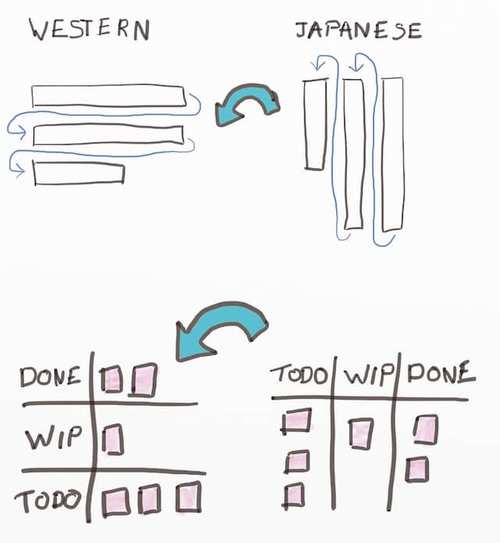 WESTERN
JAPANESE
DONE
WIP
TODO
TODO WIP DONE